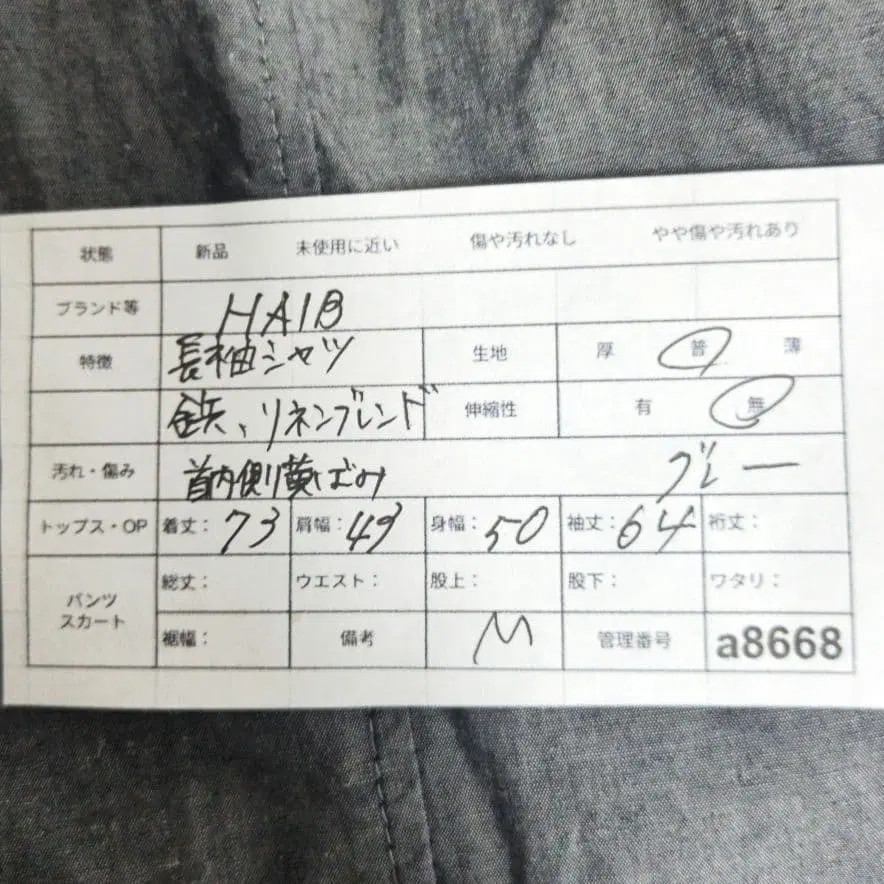 状態 新品 未使用に近い 傷や汚れなし やや傷や汚れあり
ブランド等 HAIB
特徴 長袖シャツ 生地 厚 普 薄
鉄、リネンブレンド 伸縮性 有 無
汚れ・傷み 首内側黄ばみ グレー
トップス・OP 着丈: 73 肩幅: 43 身幅: 50 袖丈: 64 裄丈:
パンツ スカート 総丈: ウエスト: 股上: 股下: ワタリ:
裾幅: 備考 M 管理番号 a8668